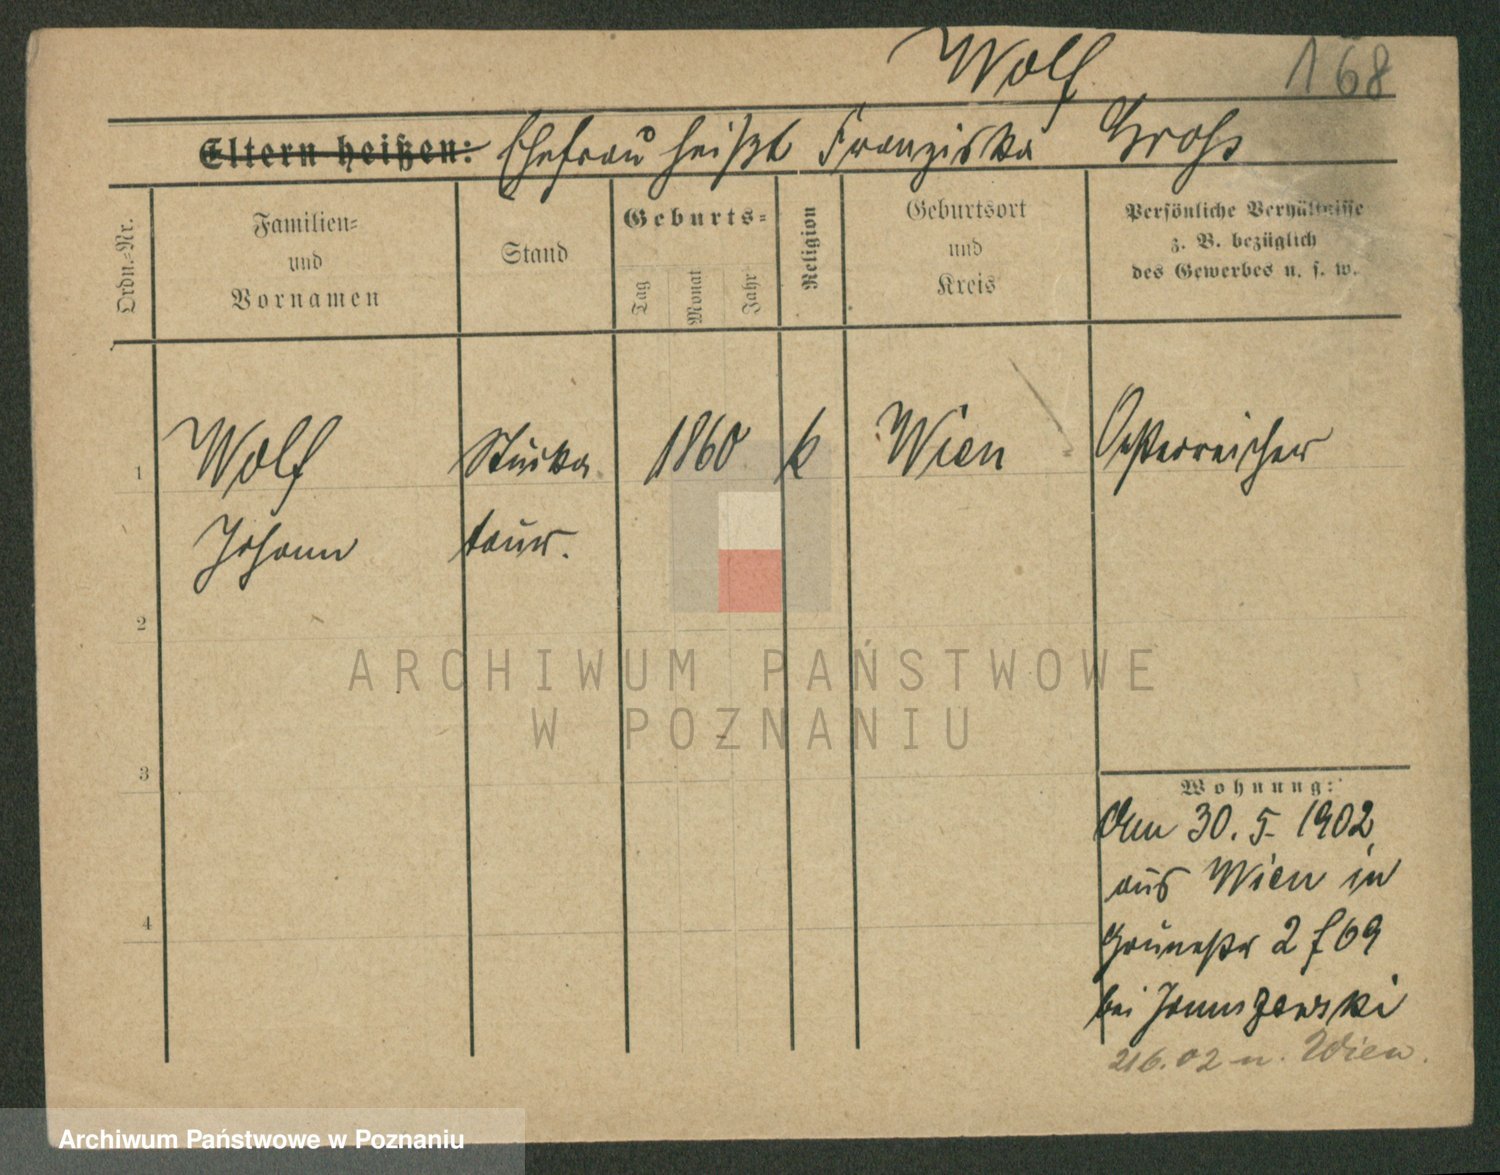 Wolf 168
Eltern heißen: Ehefrau heißt Franziska Gross
Ordn.-Nr.
Familien-
und
Vornamen
Stand
Geburts-
Tag
Monat
Jahr
Religion
Geburtsort
und
Kreis
Persönliche Verhältnisse
z. B. bezüglich
des Gewerbes u. s. w.
1 Wolf Stucka 1860 k Wien Oesterreicher
Johann teur.
2
3
4
Wohnung:
Am 30. 5. 1902
aus Wien in
Grünestr 2 f 69
bei Januszewski
n. Wien.
ARCHIWUM PAŃSTWOWE
W POZNANIU
Archiwum Państwowe w Poznaniu